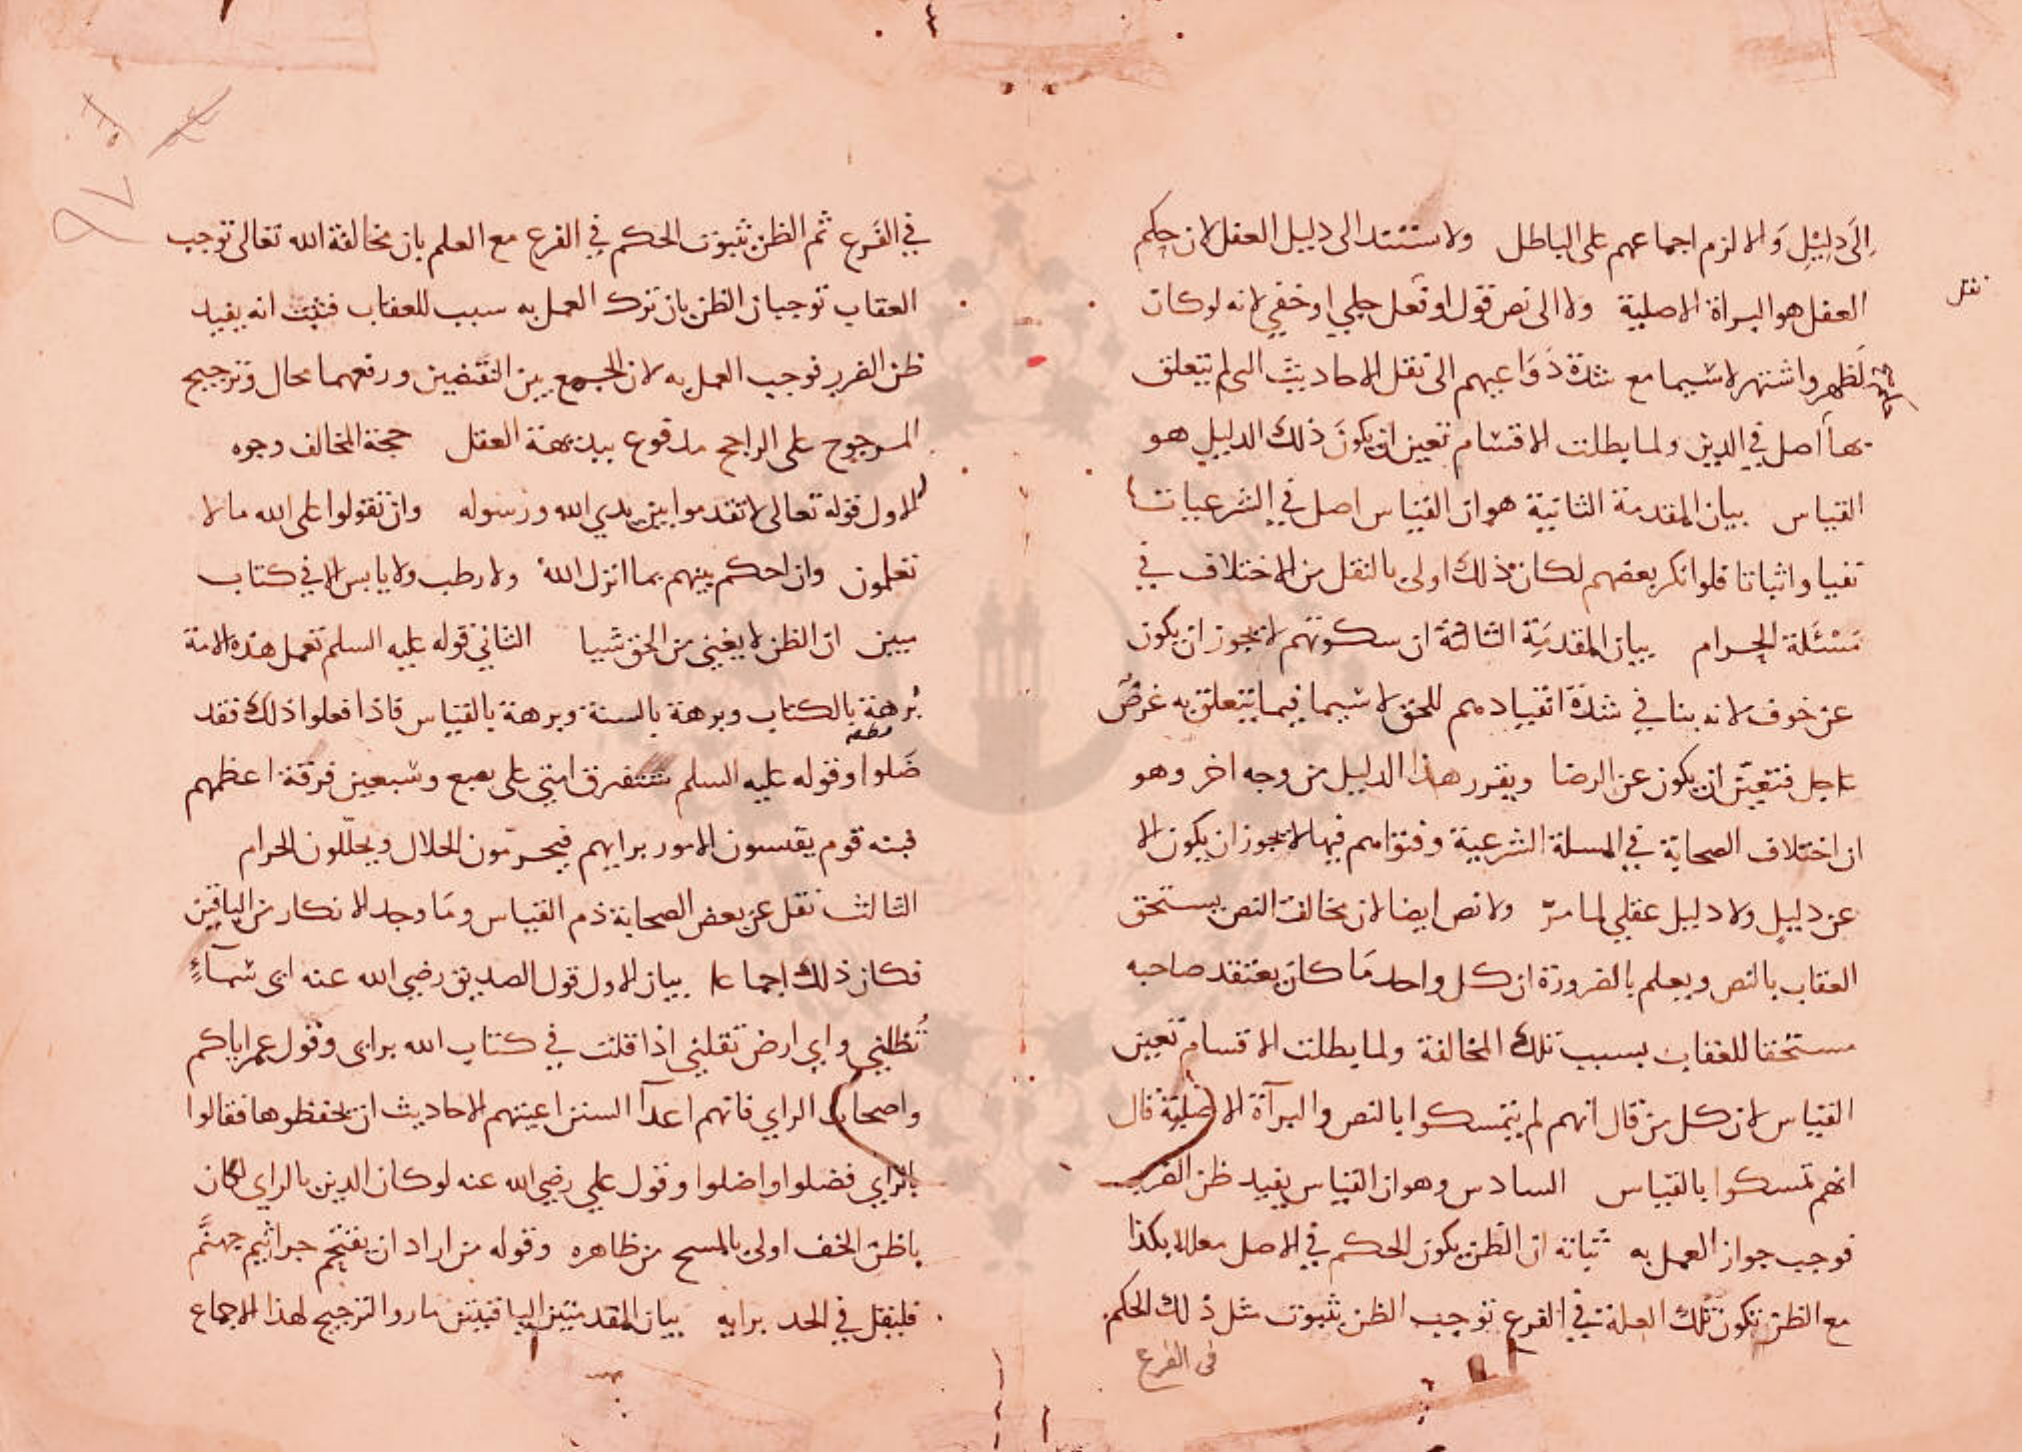 إلى دليل والا لزم اجماعهم على الباطل ولاستند الى دليل العقل لان حكم
العقل هو البراة الاصلية ولا الى نص قول او فعل جلي او خفي لانه لو كان
نقل
لظهر واشتهر لاسيما مع شدة دواعيهم الى نقل الاحاديث التي لم يتعلق
بها اصل في الدين ولما بطلت الاقسام تعين ان يكون ذلك الدليل هو
القياس بيان المقدمة الثانية هو ان القياس اصل في الشرعيات
نفيا واثباتا فلو انكر بعضهم لكان ذلك اولى بالنقل من الاختلاف في
مسئلة الحرام بيان المقدمة الثالثة ان سكوتهم لا يجوز ان يكون
عن خوف لانه ينافي شدة انقيادهم للحق لا سيما فيما يتعلق به غرض
عاجل فتعين ان يكون عن الرضا ويقرر هذا الدليل من وجه اخر وهو
ان اختلاف الصحابة في المسلة الشرعية وفتواهم فيها لا يجوز ان يكون الا
عن دليل ولا دليل عقلي لما مر ولا نص ايضا لان مخالف النص يستحق
العقاب بالنص ويعلم بالضرورة ان كل واحد ما كان يعتقد صاحبه
مستحقا للعقاب بسبب تلك المخالفة ولما بطلت الاقسام تعين
القياس لان كل من قال انهم لم يتمسكوا بالنص والبرآة الاصلية قال
انهم تمسكوا بالقياس السادس وهو ان القياس يفيد ظن الضرر
فوجب جواز العمل به ثباته ان الظن بكون الحكم في الاصل معللا بكذا
مع الظن بكون تلك العلة في الفرع توجب الظن بثبوت مثل ذلك الحكم
في الفرع
في الفرع ثم الظن بثبوت الحكم في الفرع مع العلم بان مخالفة الله تعالى توجب
العقاب توجبان الظن بان ترك العمل به سبب للعقاب فثبت انه يفيد
ظن الضرر فوجب العمل به لان الجمع بين النقيضين ورفعهما محال وترجيح
المرجوح على الراجح مدفوع ببديهة العقل حجة المخالف وجوه
الاول قوله تعالى لا تقدموا بين يدي الله ورسوله وان تقولوا على الله ما لا
تعلمون وان احكم بينهم بما انزل الله ولا رطب ولا يابس الا في كتاب
مبين ان الظن لا يغني من الحق شيا الثاني قوله عليه السلم تعمل هذه الامة
برهة بالكتاب وبرهة بالسنة وبرهة بالقياس فاذا فعلوا ذلك فقد
ضلوا وقوله عليه السلم ستفترق امتي على بضع وسبعين فرقة اعظمهم
فتنه قوم يقيسون الامور برايهم فيحرمون الحلال ويحللون الحرام
الثالث نقل عن بعض الصحابة ذم القياس وما وجد الانكار من الباقين
فكان ذلك اجماعا بيان الاول قول الصديق رضي الله عنه اى سمآء
تظلني واي ارض تقلني اذا قلت في كتاب الله براى وقول عمر اياكم
واصحاب الراي فانهم اعدآ السنن اعيتهم الاحاديث ان يحفظوها فقالوا
بالراي فضلوا واضلوا وقول علي رضي الله عنه لو كان الدين بالراي لكان
باطن الخف اولى بالمسح من ظاهره وقوله من اراد ان يقتحم جراثيم جهنم
فليقل في الجد برايه بيان المقدمتين الباقيتين ما ر والترجيح لهذا الاجماع